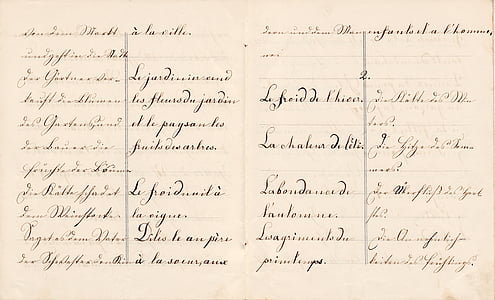 von dem Markt à la ville.
und geht in die Stadt
Der Gärtner ver- Le jardinier vend
kauft die Blumen les fleurs du jardin
des Gartens, und et le paysan les
der Bauer die fruits des arbres.
Früchte der Bäume
Die Kälte schadet Le froid nuit à
dem Weinstock. la vigne.
Saget es dem Vater Dites le au père
der Schwester den Kin à la soeur, aux
dern und dem Man enfants et a l'homme,
ne.
2.
Le froid de l'hiver. Die Kälte des Win
ters.
La chaleur de l'été. Die Hitze des Som
mers.
L'abondance de Der Überfluß des Herb
l'automne. stes.
Les agriments du Die Annehmlich-
printemps. keiten des Frühlings.